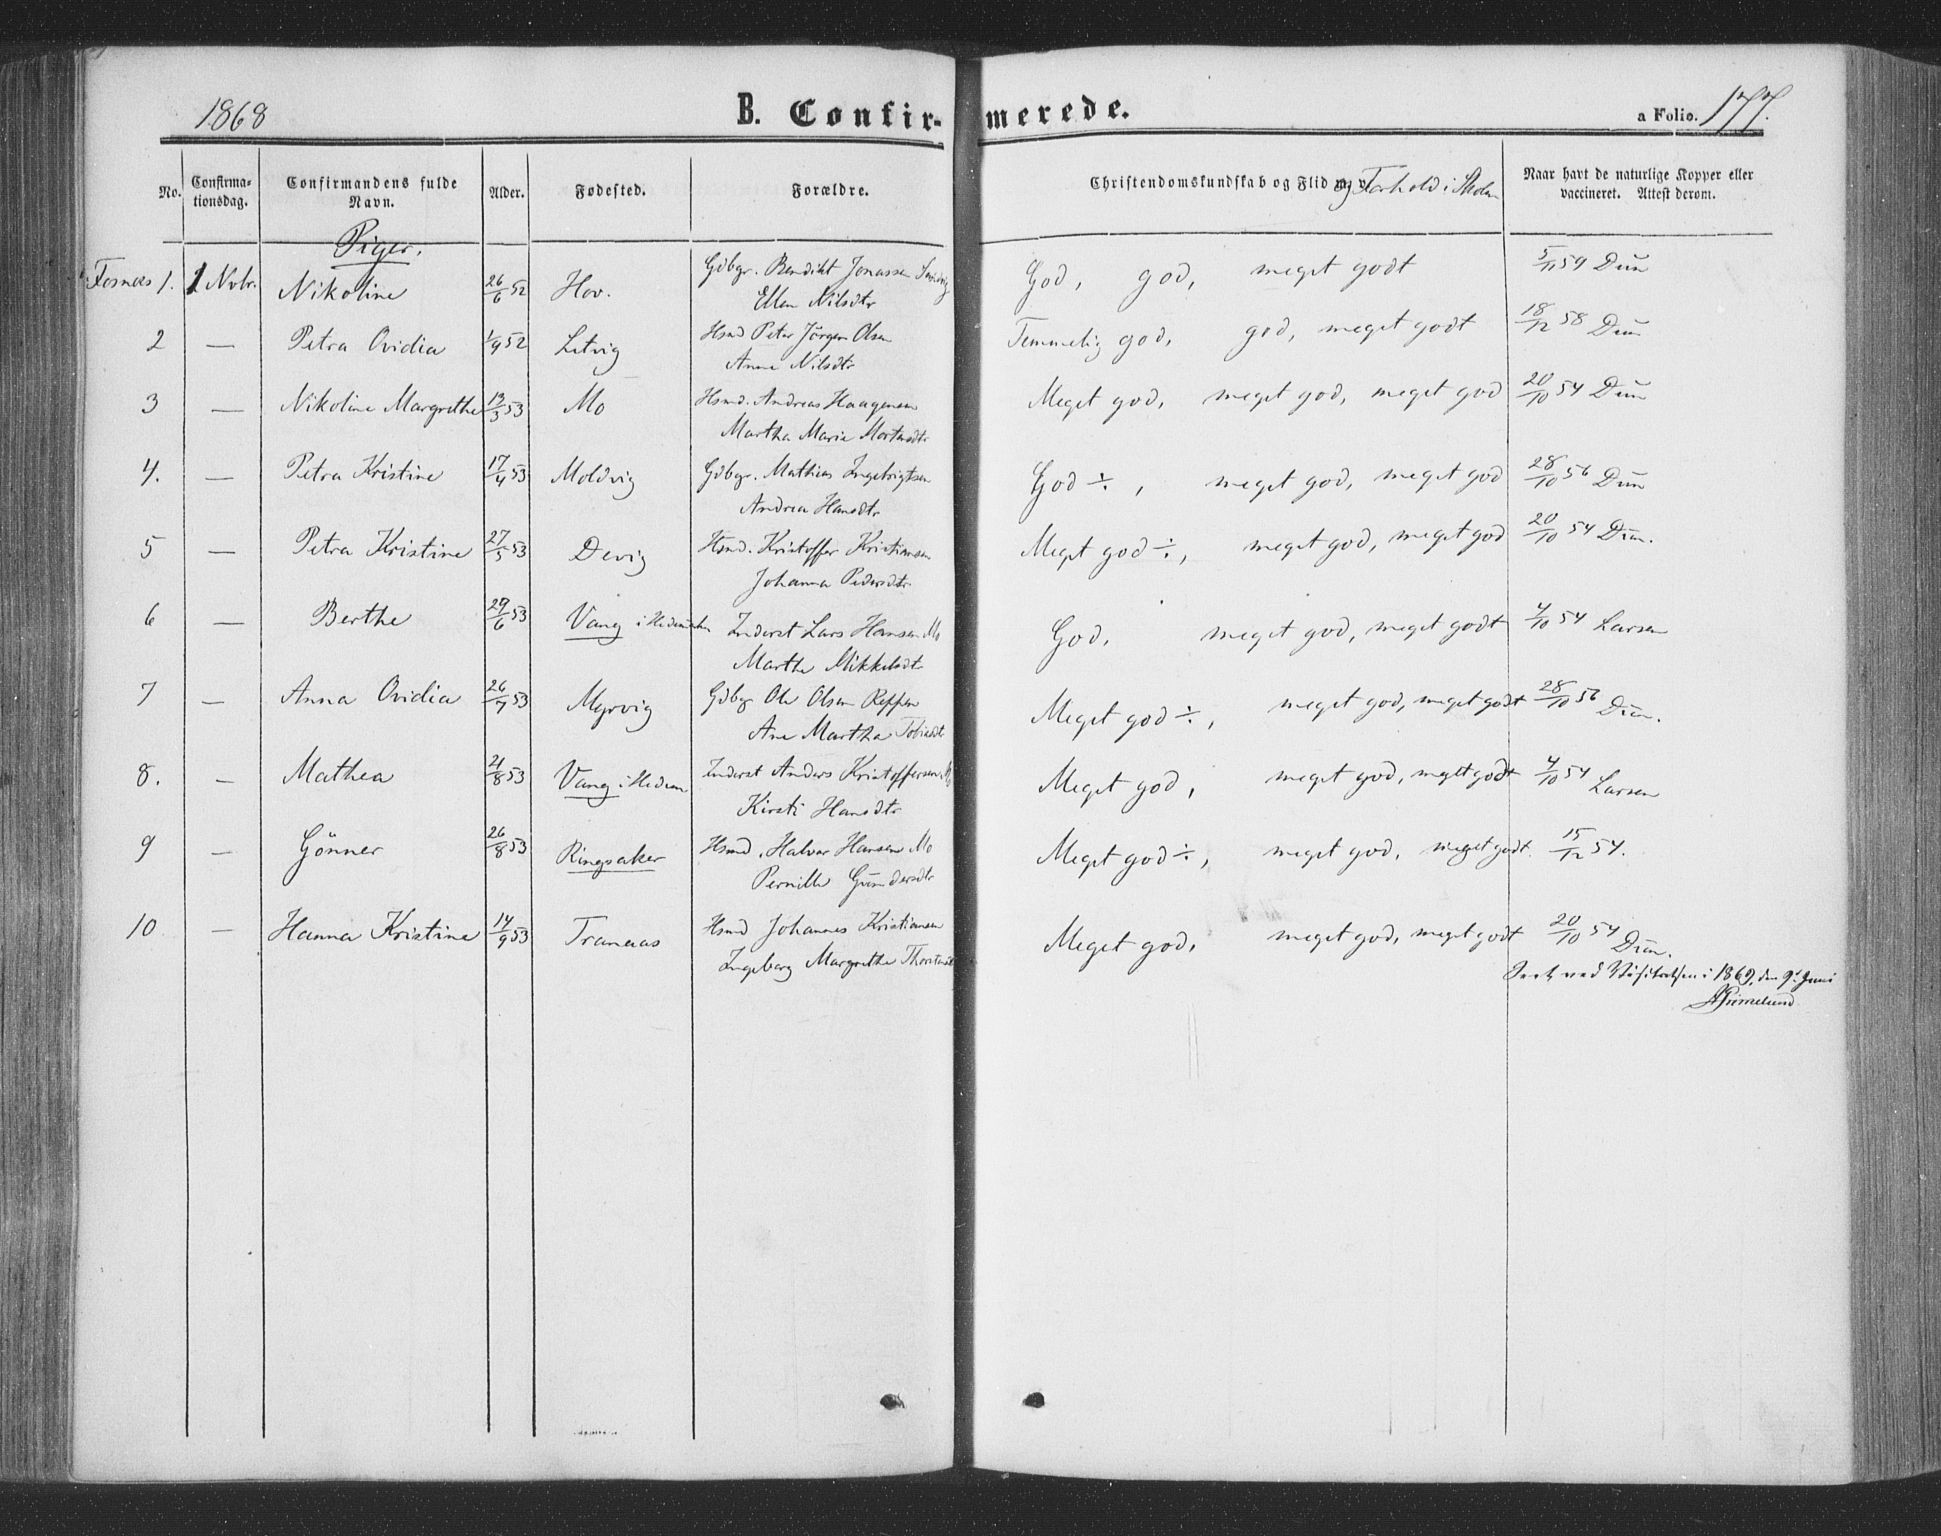 1868
B. Confir-merede.
a Folio. 177.
No. Confirma-tionsdag. Confirmandens fulde Navn. Alder. Fødested. Forældre. Christendomskundskab og Flid m. v. og Forhold i Skolen Naar havt de naturlige Kopper eller vaccineret. Attest derom.
Piger.
Fosnæs 1. 1 Nvbr. Nikoline 26/6 52 Hov. Gdbgr. Benedikt Jonassen God, god, meget godt 5/11 54 Dun
Ellen Nilsdtr
2 — Petra Ovidia 1/9 52 Letvig Hsmd Peter Jørgen Olsen Temmelig god, god, meget godt 18/12 58 Dun
Anne Nilsdtr
3 — Nikoline Margrethe 13/3 53 Mo Hsmd. Andreas Haagensen Meget god, meget god, meget god 20/10 54 Dun
Martha Maria Mortensdtr
4. — Petra Kristine 17/4 53 Moldvig Gdbgr. Mathias Ingebrigtsen God ÷, meget god, meget god 28/10 56 Dun
Andrea Hansdtr
5 — Petra Kristine 27/5 53 Devig Hsmd. Kristoffer Kristiansen Meget god ÷, meget god, meget god 20/10 54 Dun.
Johanna Pedersdtr
6 — Berthe 29/6 53 Vang i Hedemarken Inderst Lars Hansen Mo God, meget god, meget godt 4/10 54 Larsen
Marthe Mikkelsdtr
7 — Anna Ovidia 26/7 53 Myrvig Gdbgr Ole Olsen Reppen Meget god ÷, meget god, meget godt 28/10 56 Dun.
Ane Martha Tobiasdtr
8. — Mathea 21/8 53 Vang i Hedem Inderst Anders Kristoffersen Mo Meget god, meget god, meget godt 4/10 54 Larsen
Kirsti Hansdtr
9 — Gønner 26/8 53 Ringsaker Hsmd. Halvor Hansen Mo Meget god ÷, meget god, meget godt. 15/12 54.
Pernille Gundersdtr
10 — Hanna Kristine 14/9 53 Tranaas Hsmd Johannes Kristiansen Meget god, meget god, meget godt 20/10 54 Dun.
Ingeborg Margrethe Thorstensdtr
Seet ved Visitatsen i 1869, den 9d Juni
Grimelund